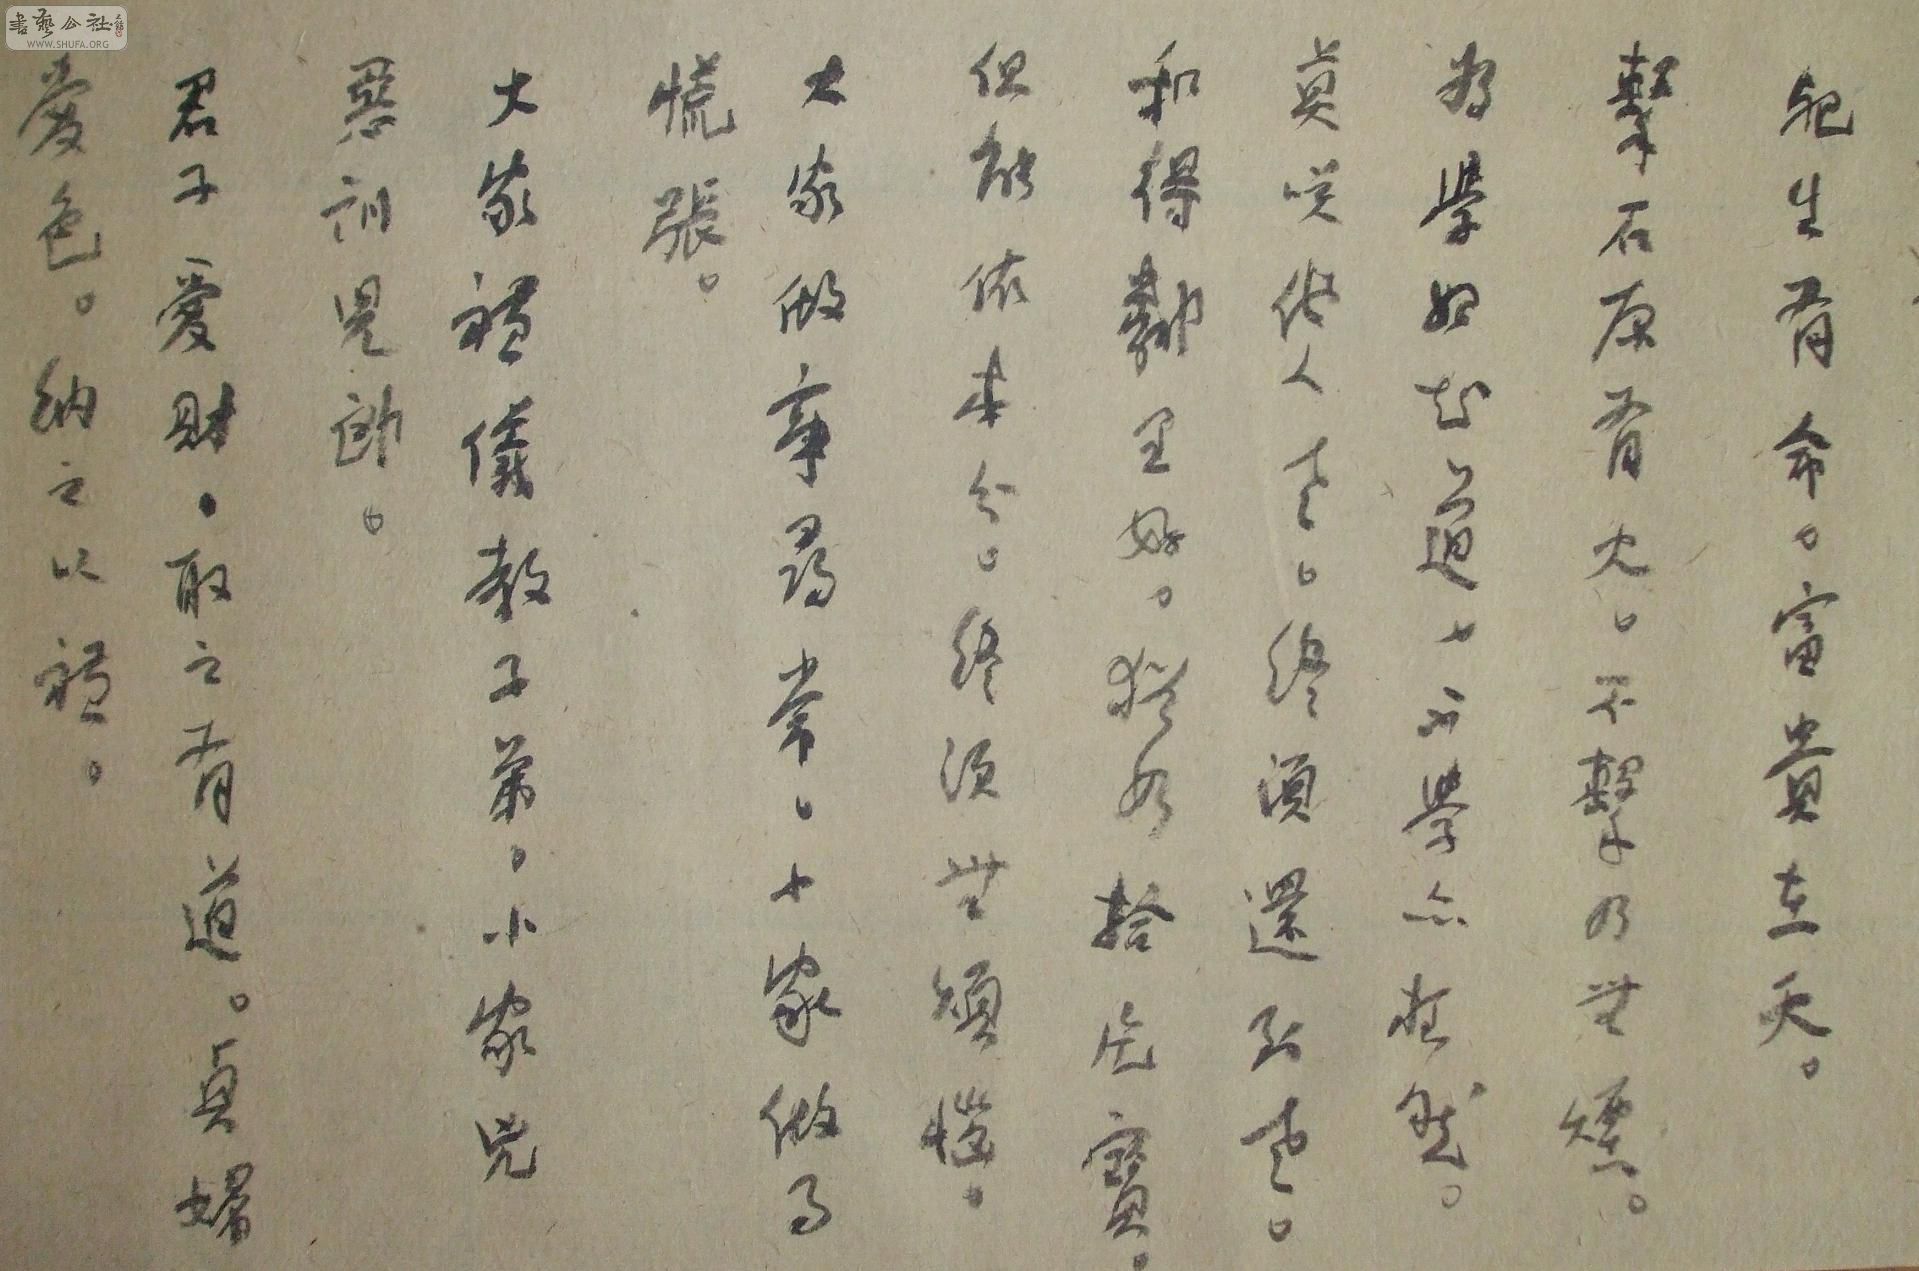 死生有命。富貴在天。
擊石原有火。不擊乃無煙。
為學始知道，不學亦枉然。
莫咲他人老。終須還到老。
和得鄰里好。猶如拾片寶。
但能依本分。終須無煩惱。
大家做事尋常。小家做事
慌張。
大家禮儀教子弟，小家兇
惡訓兒郎。
君子愛財，取之有道。貞婦
愛色。納之以禮。
書藝公社
WWW.SHUFA.ORG